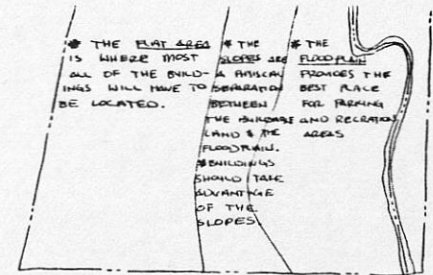 * THE FLAT AREA
IS WHERE MOST
ALL OF THE BUILD-
INGS WILL HAVE TO
BE LOCATED.
* THE
SLOPES ARE
A PHYSICAL
SEPARATION
BETWEEN
THE BUILDABLE
LAND & THE
FLOODPLAIN.
* BUILDINGS
SHOULD TAKE
ADVANTAGE
OF THE
SLOPES.
* THE
FLOODPLAIN
PROVIDES THE
BEST PLACE
FOR PARKING
AND RECREATION
AREAS